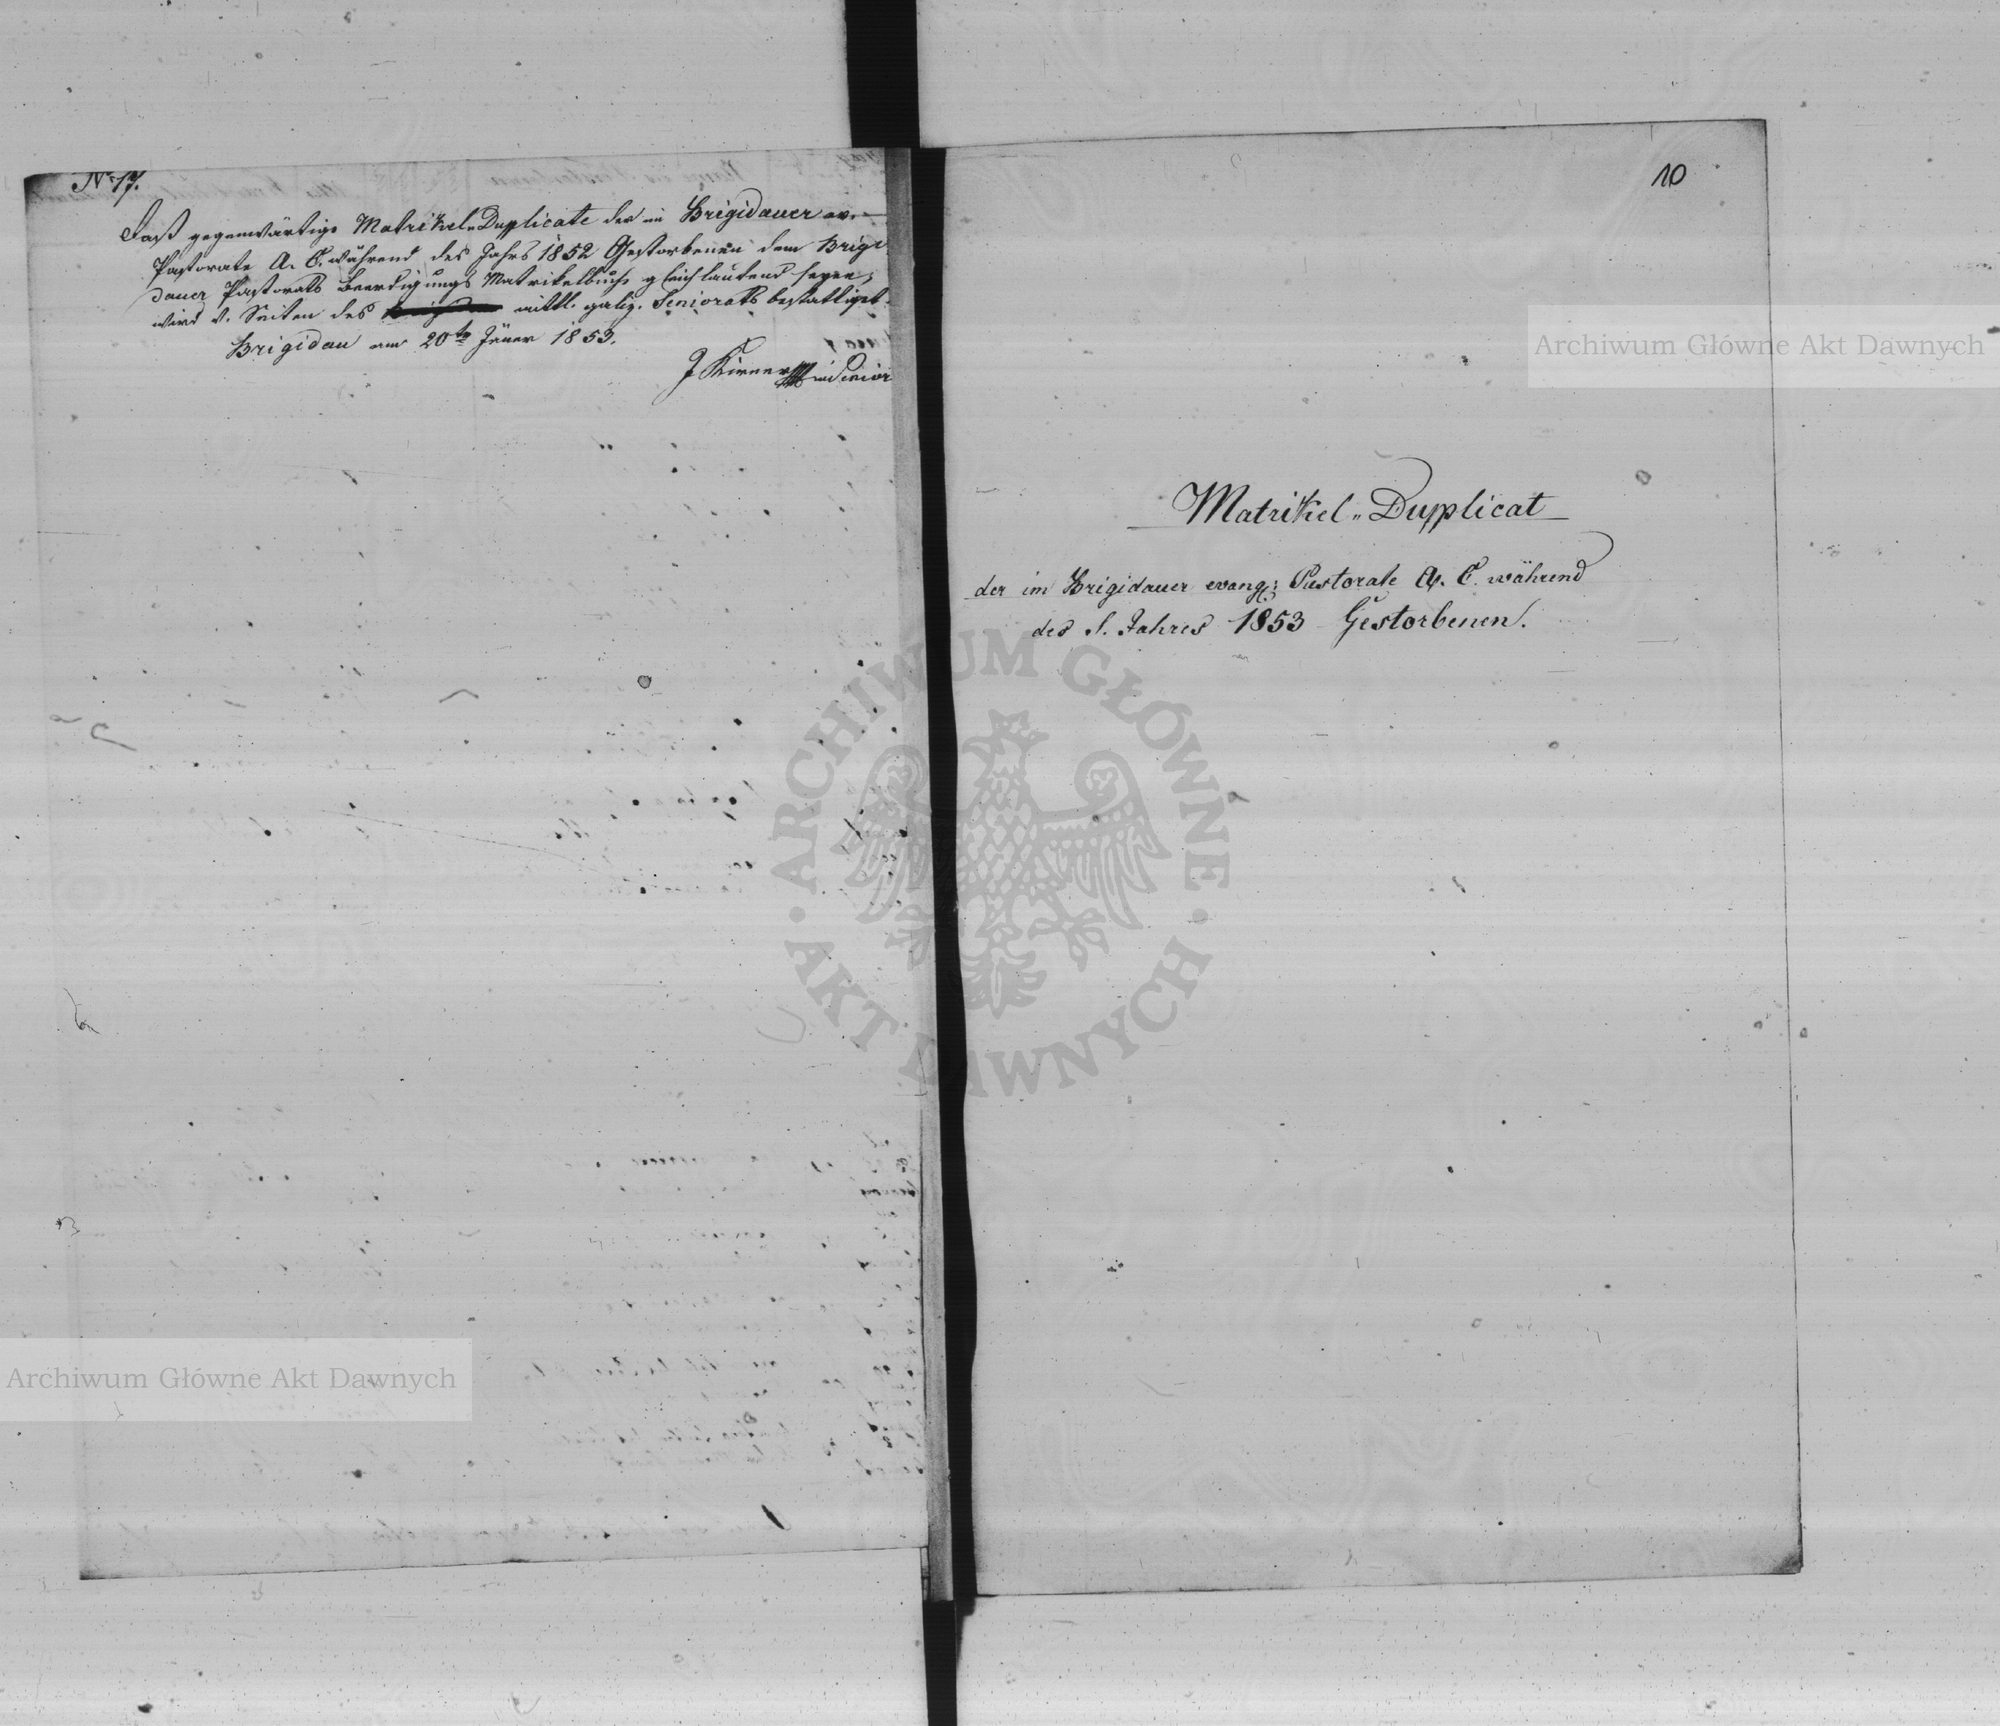 No 17.
Daß gegenwärtige Matrikel„Duplicate der im Brigidauer ev.
Pastorate A. C. während des Jahrs 1852 Gestorbenen dem Brigi
dauer Pastorats Beerdigungs Matrikelbuche gleichlautend seyen,
wird v. Seiten des mittl. galiz. Seniorats bestättiget.
Brigidau am 20te Jäner 1853.
J Kirner Senior
10
Matrikel„Duplicat
der im Brigidauer evang: Pastorate A. C. während
des S. Jahres 1853 Gestorbenen.
Archiwum Główne Akt Dawnych
ARCHIWUM GŁÓWNE AKT DAWNYCH
Archiwum Główne Akt Dawnych